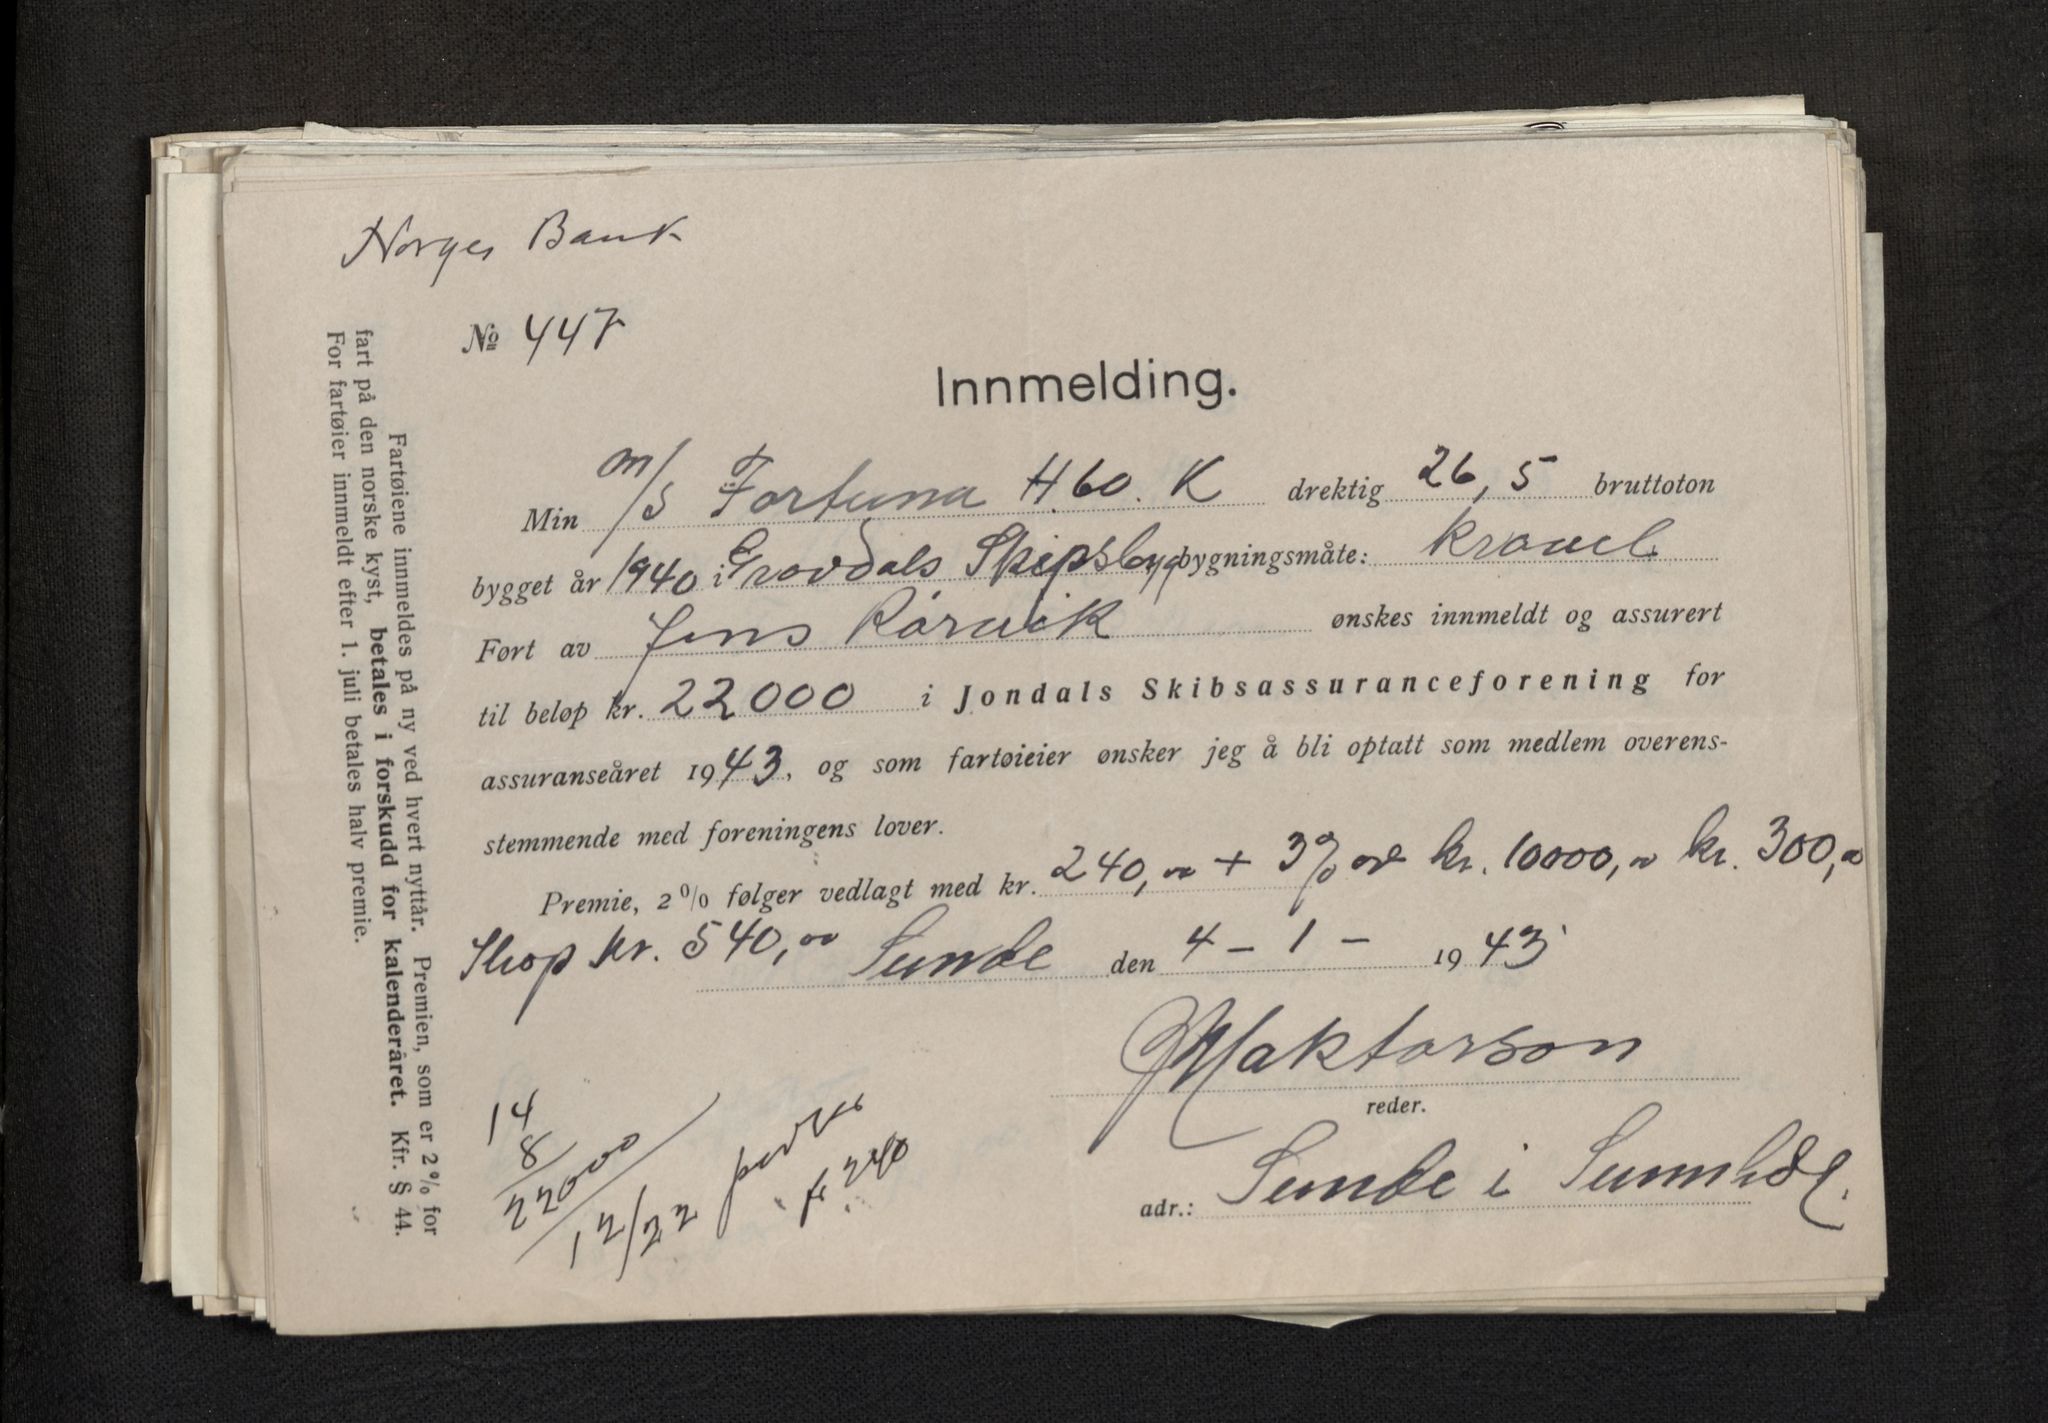 Norges Bank
No 447
Innmelding.
Min m/s Fortuna H.60.K drektig 26,5 bruttoton
bygget år 1940 i Grovdals Skipsbyg bygningsmåte: kravel
Ført av Jens Rørvik ønskes innmeldt og assurert
til beløp kr. 22000 i Jondals Skibsassuranceforening for
assuranseåret 1943, og som fartøieier ønsker jeg å bli optatt som medlem overens-
stemmende med foreningens lover.
Premie, 2% følger vedlagt med kr. 240,00 + 3% av kr. 10000,00 kr. 300,00
Ihop kr. 540,00 Sunde den 4-1- 1943
Maktorson
reder.
adr.: Sunde i Sunnhdl.
14
8/22000
12/22
kr 240
Fartøiene innmeldes på ny ved hvert nyttår. Premien, som er 2% for
fart på den norske kyst, betales i forskudd for kalenderåret. Kfr. § 44.
For fartøier innmeldt efter 1. juli betales halv premie.